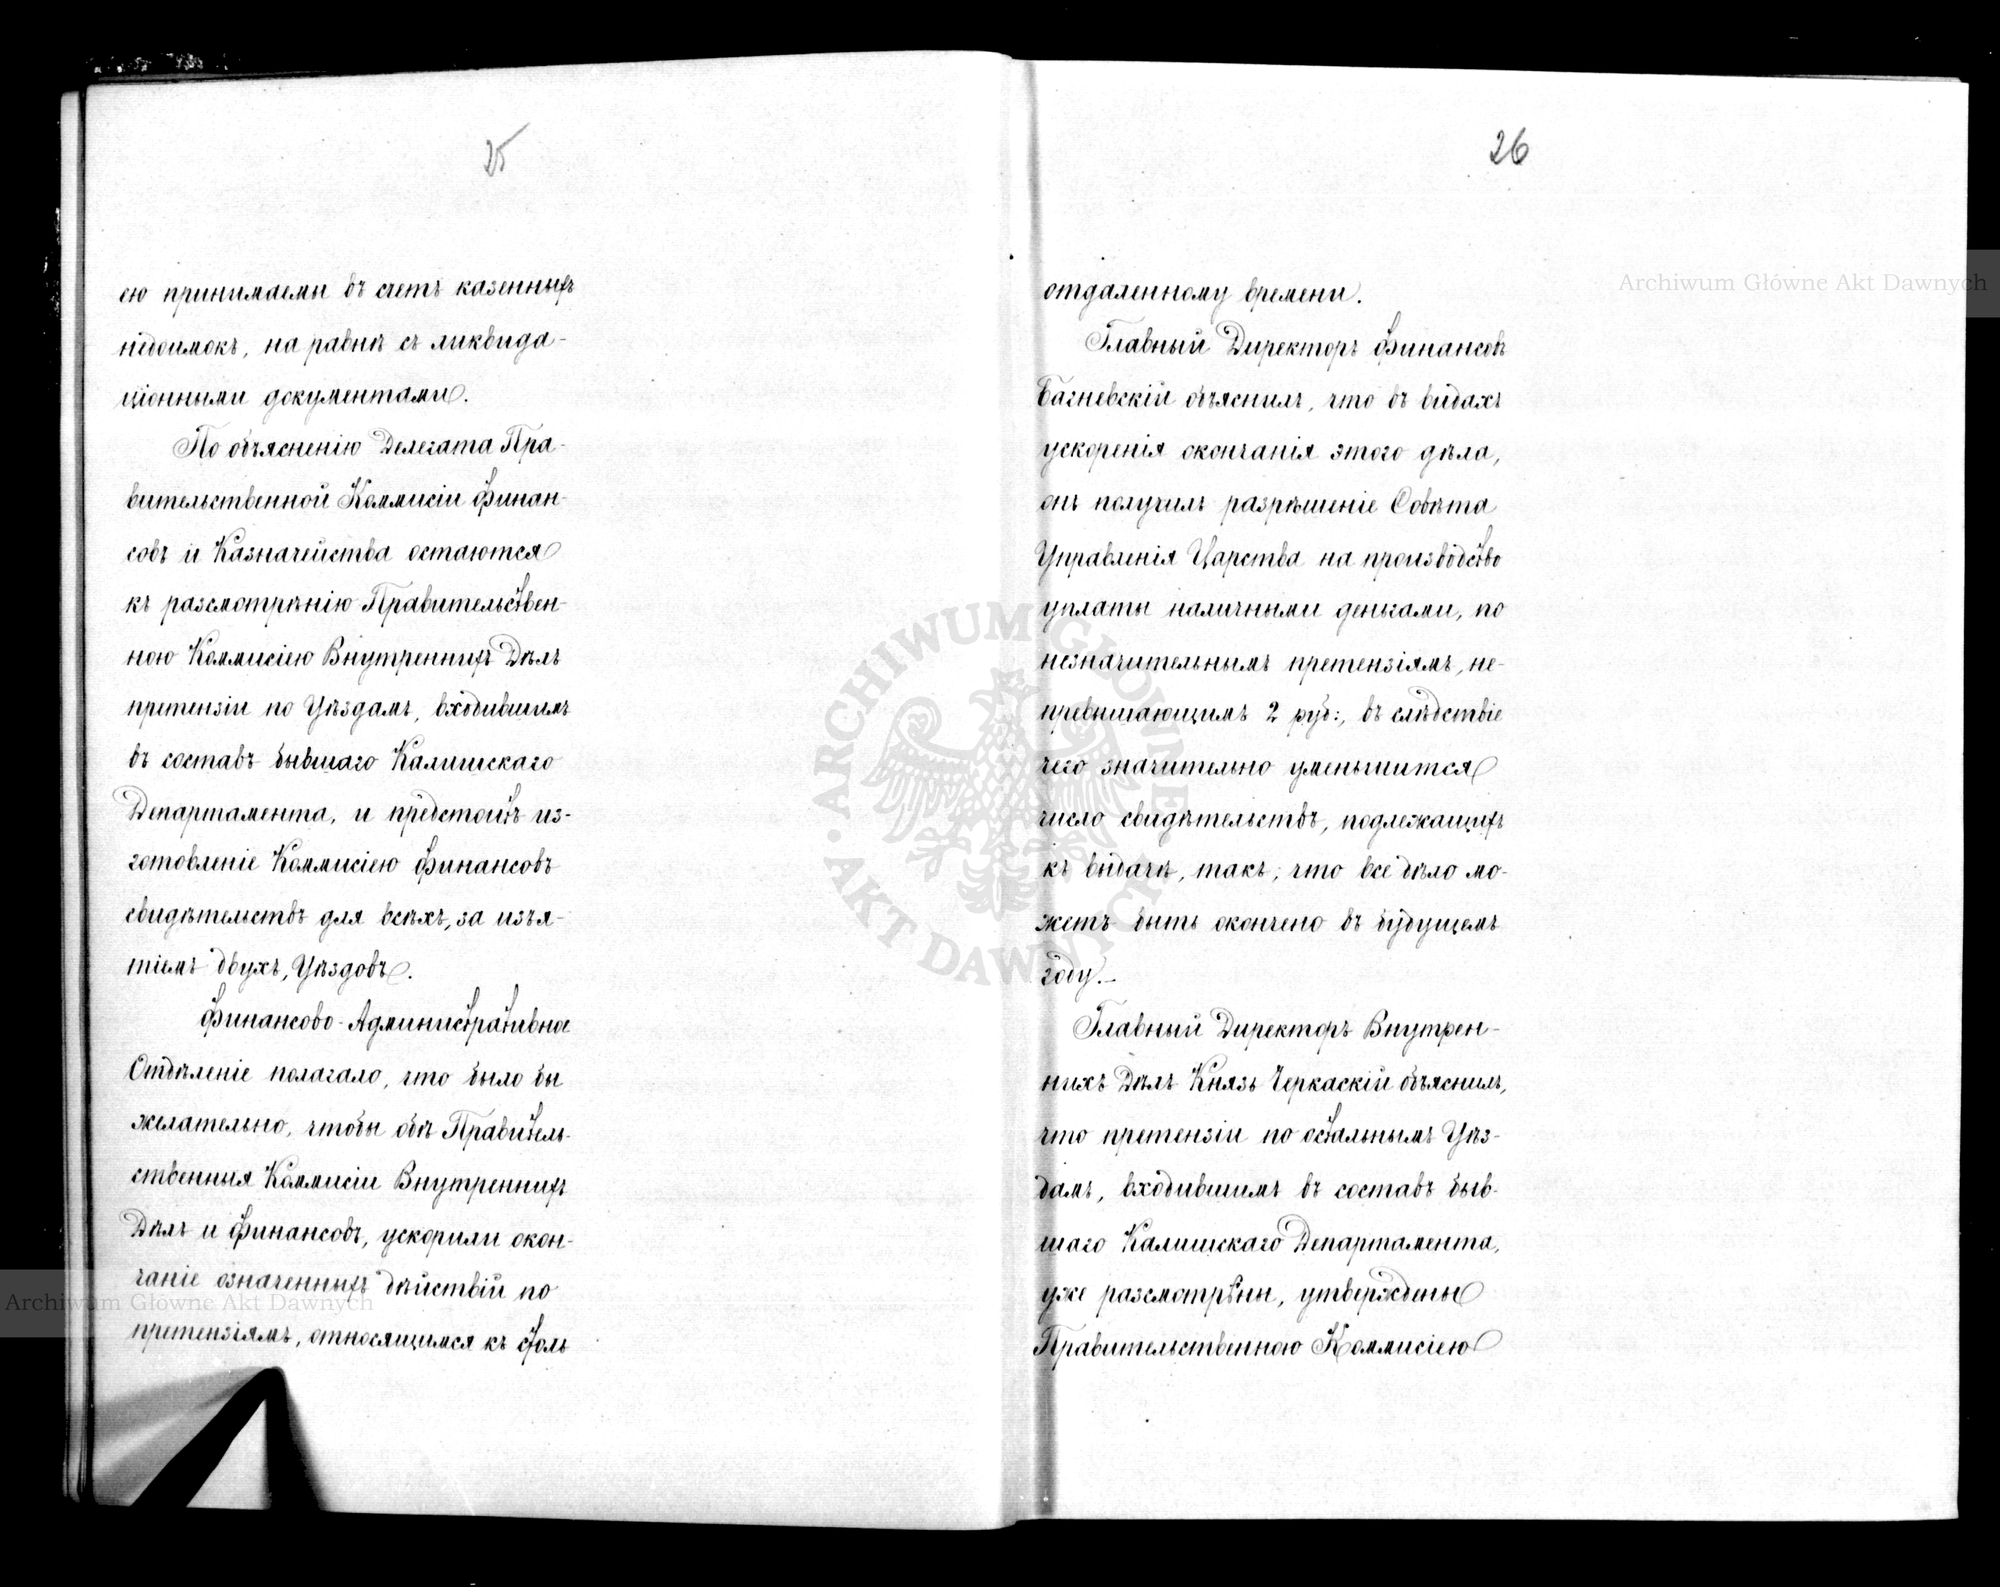 25
ею принимаемы въ счетъ казенныхъ
недоимокъ, на равнѣ съ ликвида-
ціонными документами.
По объясненію Делегата Пра-
вительственной Коммисіи Финан-
совъ и Казначейства остаются
къ разсмотрѣнію Правительствен-
ною Коммисіею Внутреннихъ Дѣлъ
претензіи по Уѣздамъ, входившимъ
въ составъ бывшаго Калишскаго
Департамента, и предстоитъ из-
готовленіе Коммисіею Финансовъ
свидѣтельствъ для всѣхъ, за изъя-
тіемъ двухъ, Уѣздовъ.
Финансово-Административное
Отдѣленіе полагало, что было бы
желательно, чтобы обѣ Правитель-
ственныя Коммисіи Внутреннихъ
Дѣлъ и Финансовъ, ускорили окон-
чаніе означенныхъ дѣйствій по
претензіямъ, относящимся къ столь
26
отдаленному времени.
Главный Директоръ Финансовъ
Багневскій объяснилъ, что въ видахъ
ускоренія окончанія этого дѣла,
онъ получилъ разрѣшеніе Совѣта
Управленія Царства на производство
уплаты наличными деньгами, по
незначительнымъ претензіямъ, не-
превышающимъ 2 руб:, въ слѣдствіе
чего значительно уменьшится
число свидѣтельствъ, подлежащихъ
къ выдачѣ, такъ, что все дѣло мо-
жетъ быть окончено въ будущемъ
году.-
Главный Директоръ Внутрен-
нихъ Дѣлъ Князь Черкаскій объяснилъ,
что претензіи по остальнымъ Уѣз-
дамъ, входившимъ въ составъ быв-
шаго Калишскаго Департамента,
уже разсмотрѣны, утверждены
Правительственною Коммисіею
Archiwum Główne Akt Dawnych
ARCHIWUM GŁÓWNE • AKT DAWNYCH •
Archiwum Główne Akt Dawnych